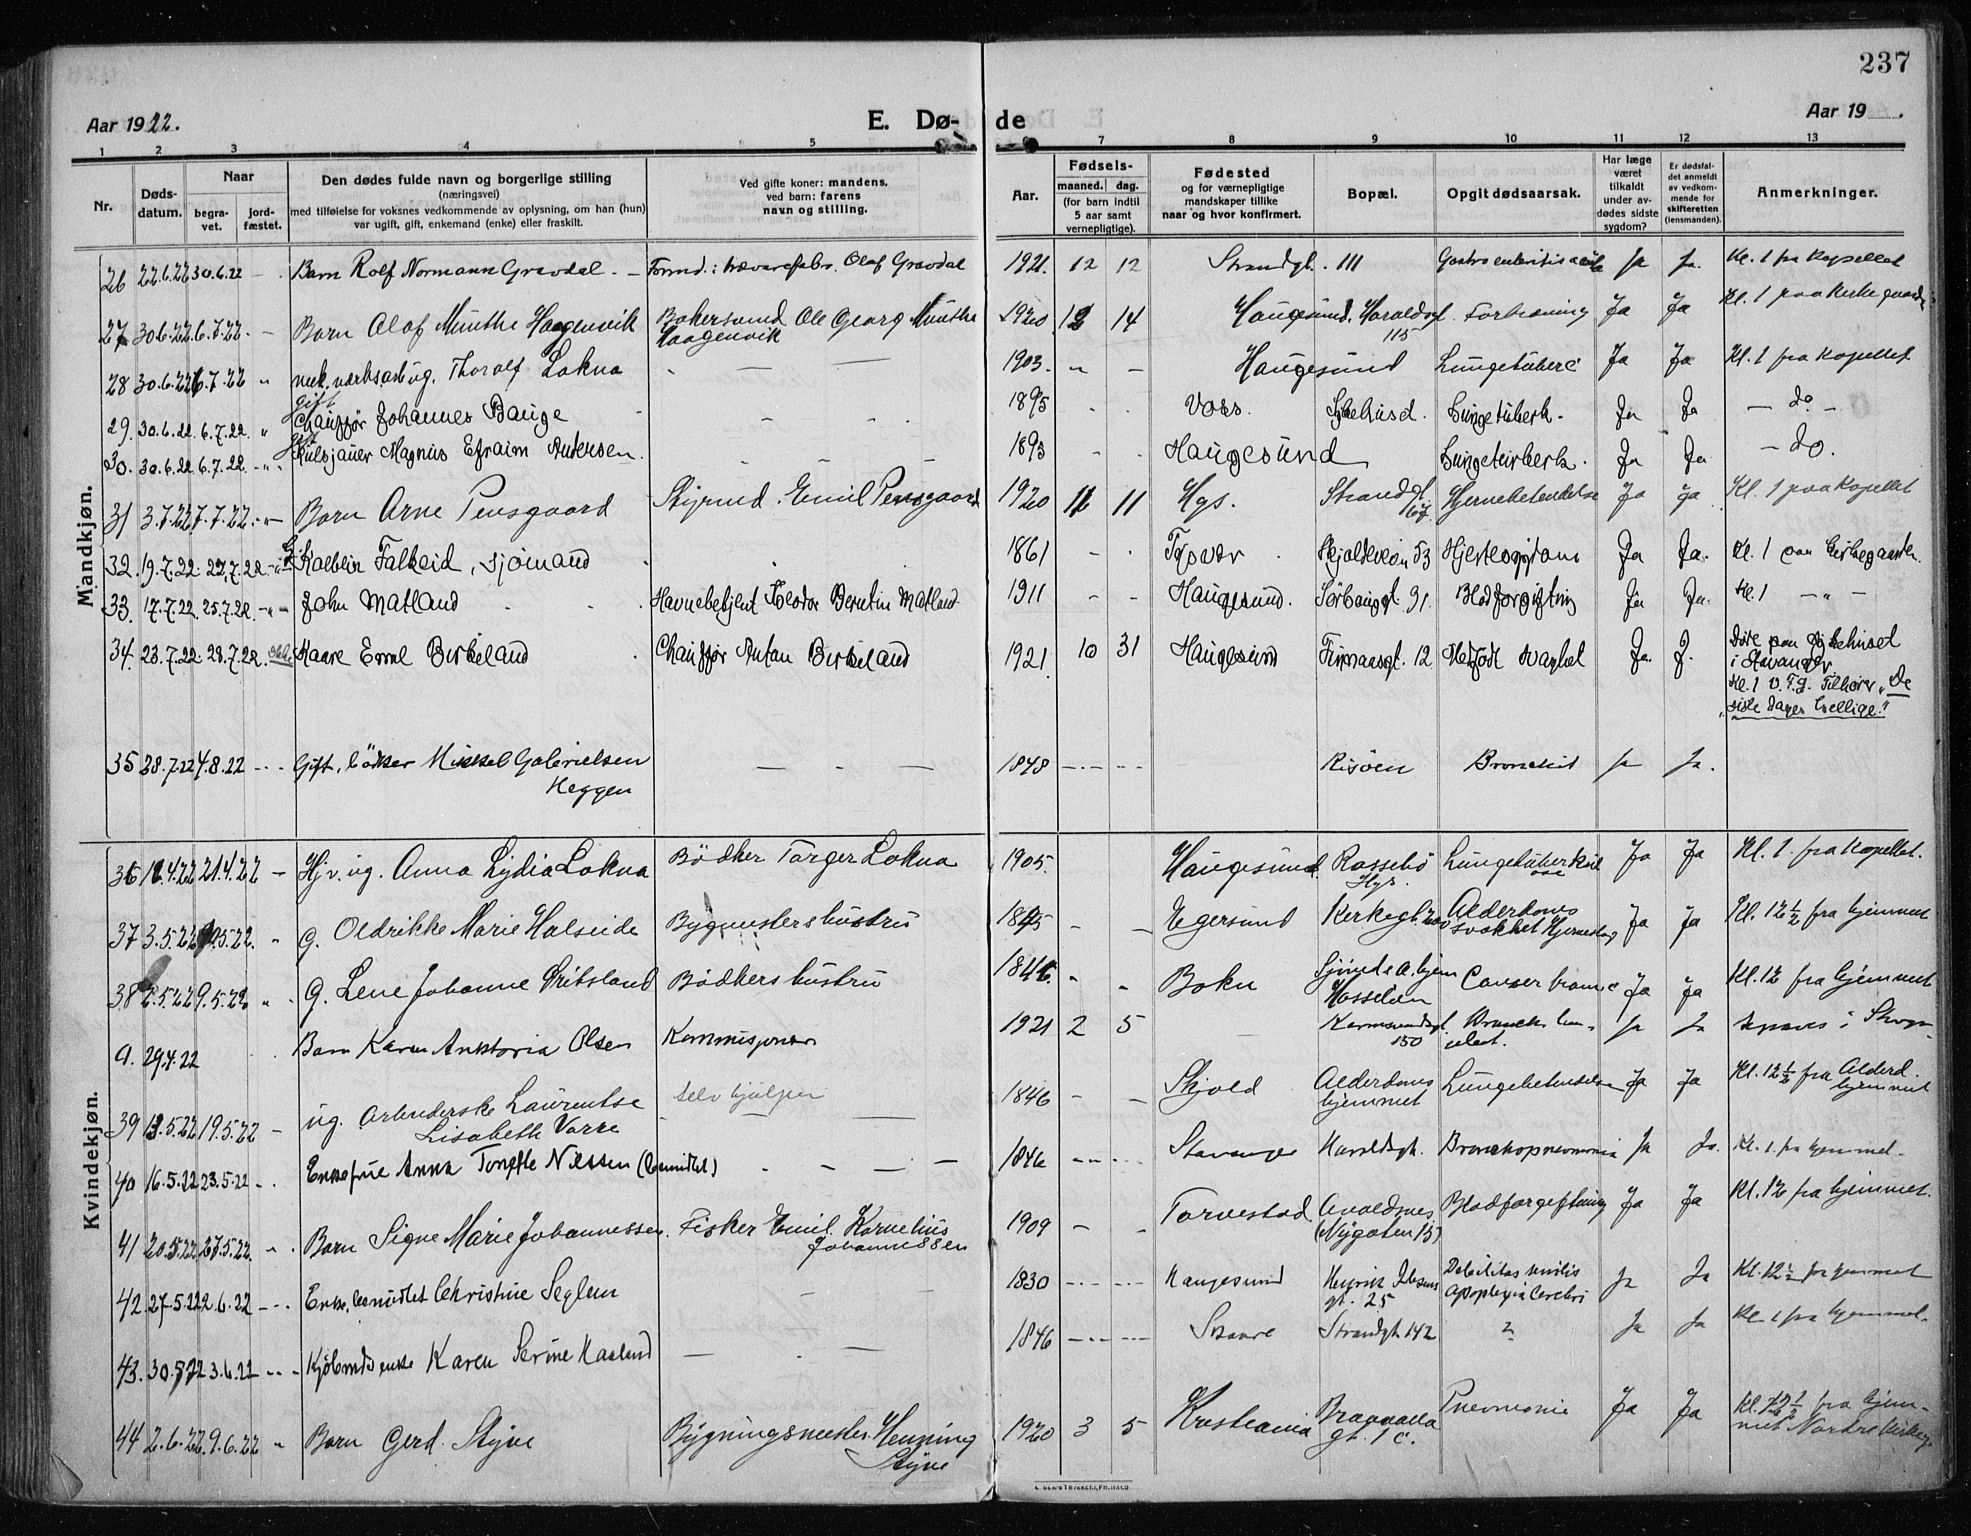 237
Aar 1922.
E. Dø-
de
Aar 19 .
1 2 3 4 5 6 7 8 9 10 11 12 13
Nr.
Døds-
datum.
Naar
begra-
vet.
jord-
fæstet.
Den dødes fulde navn og borgerlige stilling
(næringsvei)
med tilføielse for voksnes vedkommende av oplysning, om han (hun)
var ugift, gift, enkemand (enke) eller fraskilt.
Ved gifte koner: mandens,
ved barn: farens
navn og stilling.
Aar.
Fødsels-
maaned. dag.
(for barn indtil
5 aar samt
vernepligtige).
Fødested
og for værnepligtige
mandskaper tillike
naar og hvor konfirmert.
Bopæl.
Opgit dødsaarsak.
Har læge
været
tilkaldt
under av-
dødes sidste
sygdom?
Er dødsfal-
det anmeldt
av vedkom-
mende for
skifteretten
(lensmanden).
Anmerkninger.
Mandkjøn.
26 22.6.22 30.6.22 Barn Rolf Normann Gravdal Olaf Gravdal 1921 12 12 Strandgt. 111 Ja Ja Kl. 1 fra Kapellet
27 30.6.22 6.7.22 Barn Olaf Munthe Haagenvik Ole Georg Munthe 1920 12 14 Haugesund. Haraldsgt. Ja Ja Kl. 1 paa Kirkegaarden
Haagenvik 115
28 30.6.22 6.7.22 mek. værksarb. ug. Thoralf Lokna 1903 Haugesund Lungetuberc Ja Ja Kl. 1 fra Kapellet
gift
29. 30.6.22. 6.7.22. Chauffør Johannes Bauge 1895 Voss. Sykehusd. Lungetuberk. Ja Ja do
gift
30. 30.6.22 6.7.22. Kulsjauer Magnus Efraim Andersen 1893 Haugesund Lungetuberk. Ja Ja do.
31 3.7.22 7.7.22. Barn Arne Pensgaard Styrmd. Emil Pensgaard 1920 11 11 Hgs. Strandgt. 167 Hjernebetendelse Ja Ja Kl. 1 paa Kapellet
32. 19.7.22. 22.7.22 Falkeid, sjømand 1861 Tysvær 53 Hjertesygdom Ja Ja. Kl. 1 paa Kirkegaarden
33. 17.7.22. 25.7.22. John Matland Havnebetjent Teodor Berntin Matland 1911 Haugesund. Sørhauggt. 91. Blodforgiftning Ja Ja. Kl. 1 — " —
34. 23.7.22. 28.7.22. Kaare Emil Birkeland Chauffør Anton Birkeland 1921 10 31 Haugesund 12 Medfødt svaghet Ja. J. Døde paa sykehuset
i Stavanger.
Kl. 1 v. T.g. Tilhører "De
siste Dages Hellige."
35 28.7.22 4.8.22 Gift, bødker Mikkel Gabrielsen 1848 Risøen Bronchit Ja Ja.
Heggen
Kvindekjøn.
36 16.4.22 21.4.22 Hjv. ug. Anna Lydia Lokna Bødker Torger Lokna 1905. Haugesund. Rossebø Lungetuberkul Ja Ja Kl. 1 fra Kapellet.
Hgs. ose
37 3.5.22 9.5.22. g. Oldrikke Marie Halseide Bygmesters hustru 1845 Egersund Kirkegt. Alderdoms Ja Ja Kl. 12 1/2 fra hjemmet
svakhet Hjerneslag
38 2.5.22 9.5.22 g. Lene Johanne Bødkers hustru 1846. Bokn Hasseløen Cancer Ja Ja Kl. 12 fra hjemmet
a. 29.4.22 Barn Karen Olsen Kommisjonær 1921 2 5 Karmsundsgt. 150 Ja Ja
39 13.5.22 19.5.22 ug. Arbeiderske Laurentse selv hjulpen 1846 Skjold Alderdoms Lungebetendelse Ja Ja Kl. 12 1/2 fra Alderd.
Lisabeth Varre hjemmet hjemmet
40 16.5.22 23.5.22 Enkefrue Anna Nilssen (bemidlet) 1846 Stavanger Haraldsgt. Bronchopneumonia Ja Ja. Kl. 1. fra hjemmet.
41 20.5.22 27.5.22. Barn Signe Marie Johannessen. Fisker Emil Kornelius 1909 Torvestad Avaldsnes Blodforgiftning Ja Ja Kl. 12 fra hjemmet.
Johannessen (Nygaten 15)
42. 27.5.22 2.6.22 Enke, bemidlet Christine Seglem 1830 Haugesund Henrik Ibsens Debilitas senilis Ja Ja Kl. 12 1/2 fra hjemmet
gt. 25 Apoplexia Cerebri
43. 30.5.22 3.6.22 Kjøbmds enke Karen Serine Haaland 1846 Skaare Strandgt. 142 ? Ja Ja Kl. 1 fra hjemmet.
44 2.6.22 9.6.22 Barn Gerd Styve Bygningsmester Henning 1920 3 5 Kristiania Pneumonie Ja Ja Kl. 12 1/2 fra hjem-
Styve gt. 1 c. met Nordre Kirkeg.